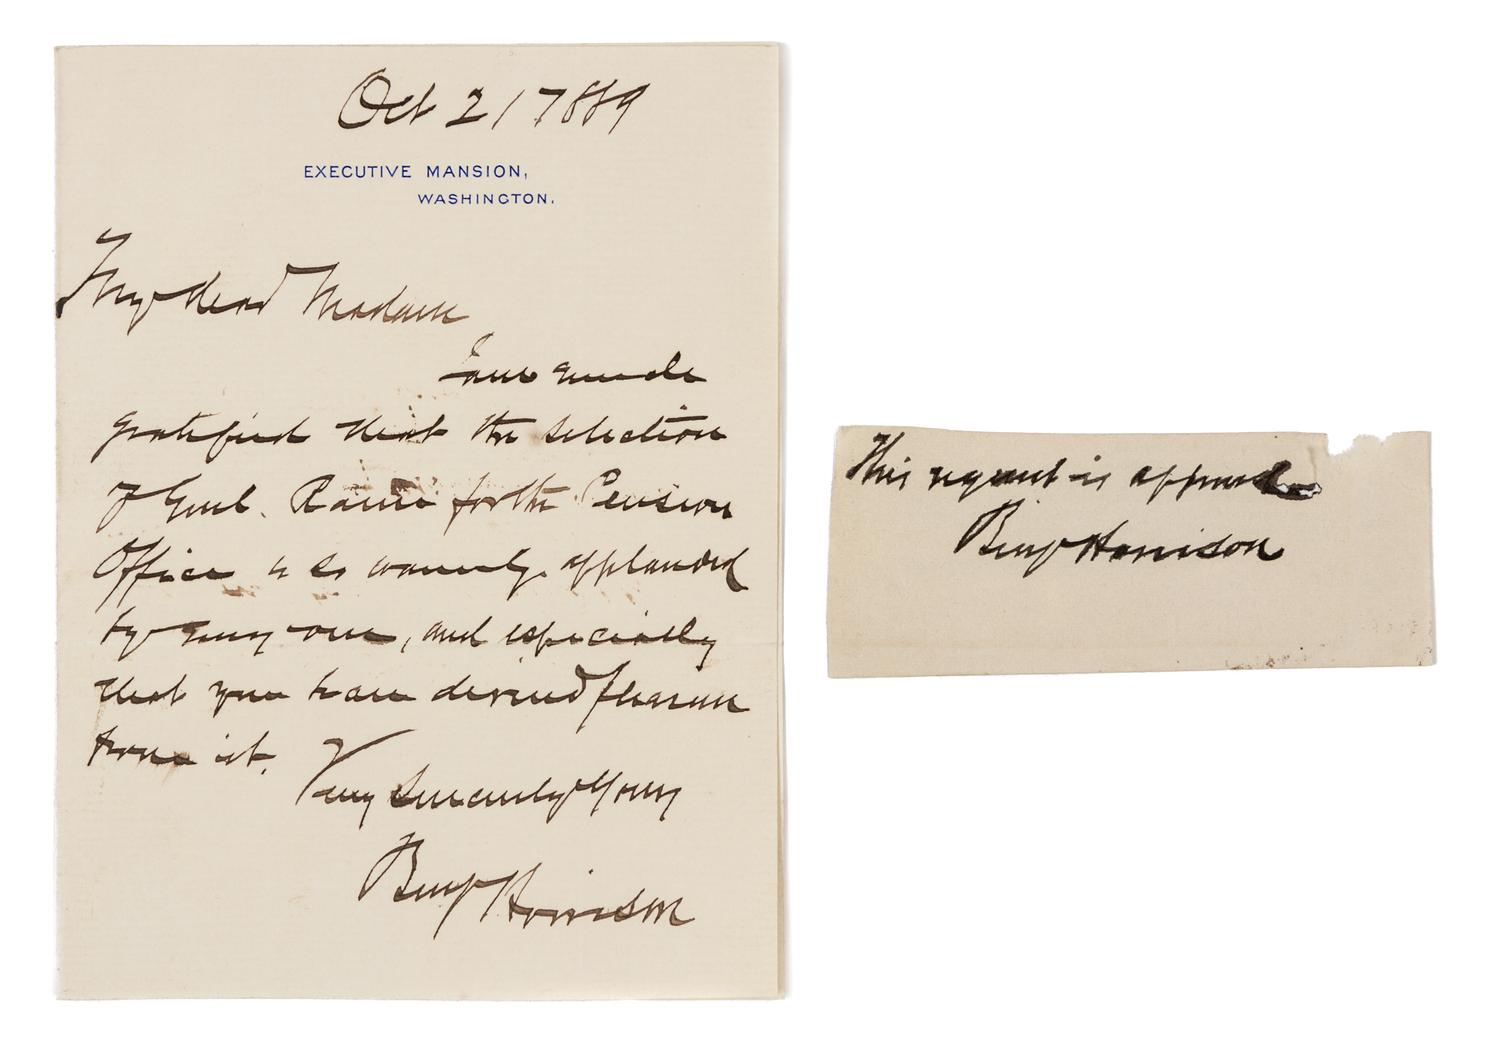 Oct 21 / 889
EXECUTIVE MANSION,
WASHINGTON.
My dear Madam
I am much
gratified that the selection
of Genl. Raum for the Pension
Office is so warmly applauded
by many one, and especially
that you have derived pleasure
from it.
Very Sincerely Yours
Benj Harrison
This request is approved
Benj Harrison